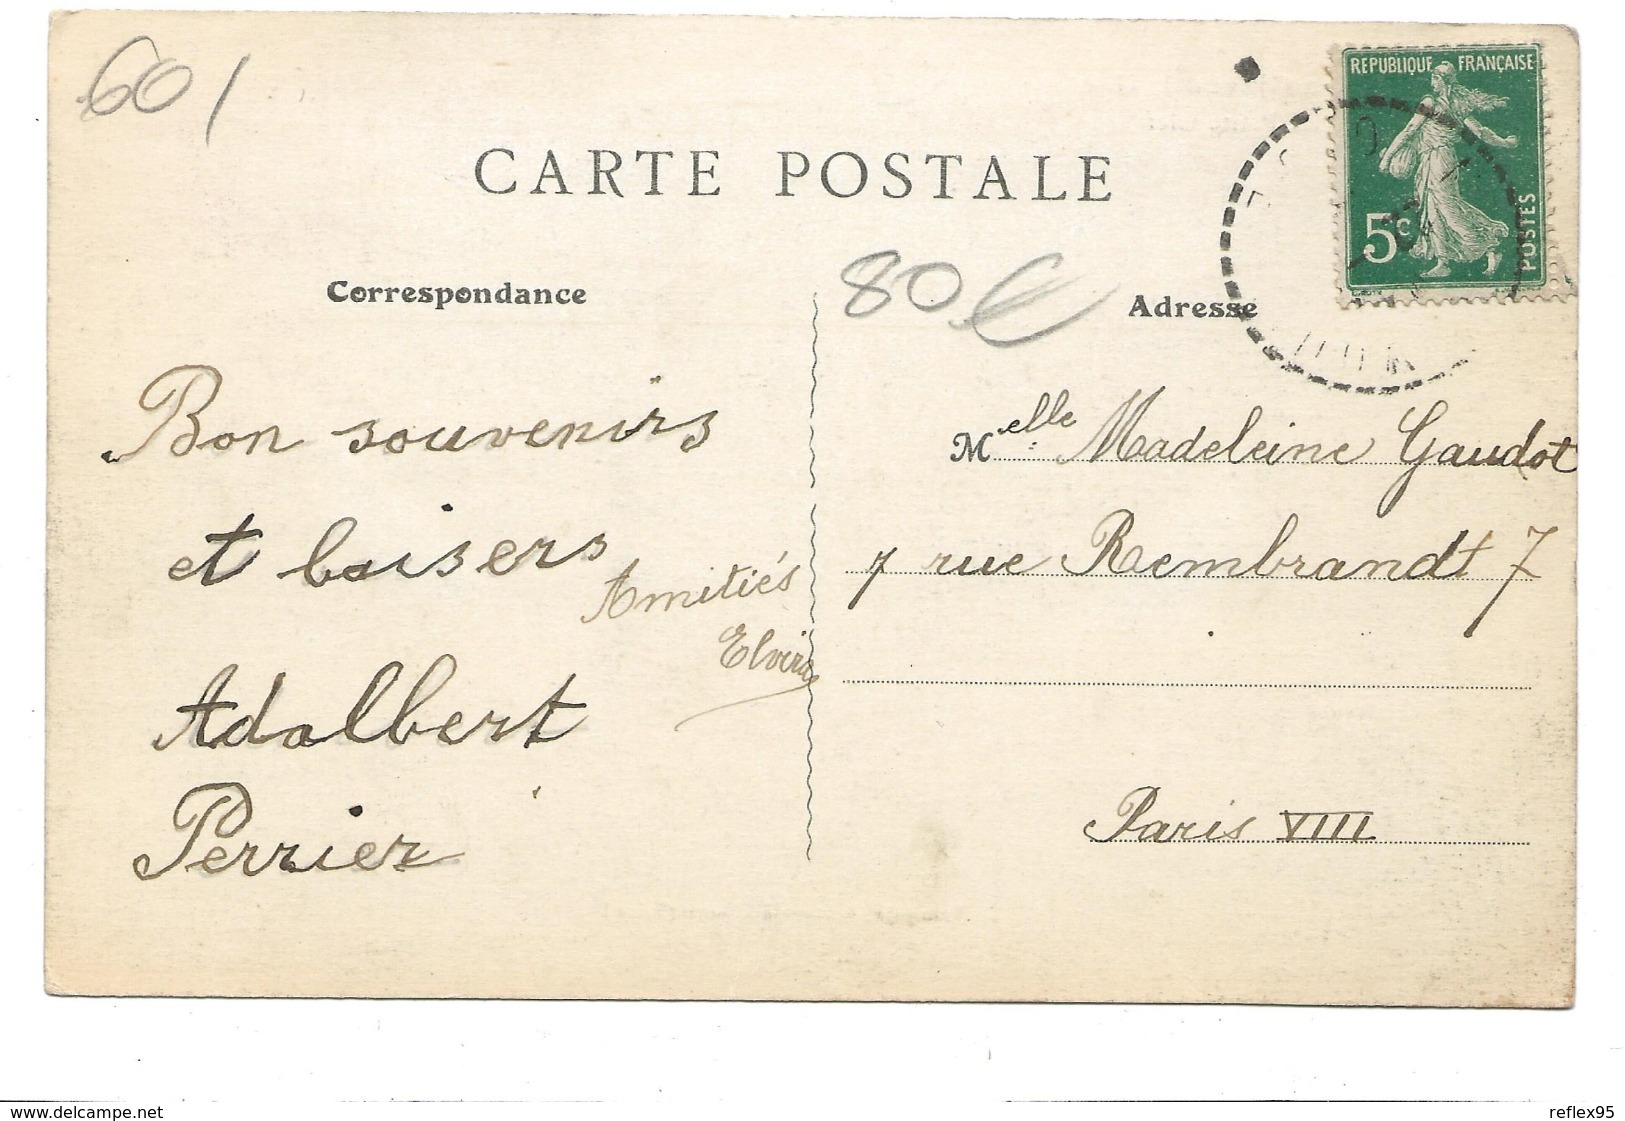 60/
REPUBLIQUE FRANÇAISE
CARTE POSTALE
5c
POSTES
80€
Correspondance
Adresse
Bon souvenirs
et baisers
Amitiés
Elvire
Adalbert
Perrier
Melle Madeleine Gaudot
7 rue Rembrandt 7
Paris VIII
www.delcampe.net
reflex95